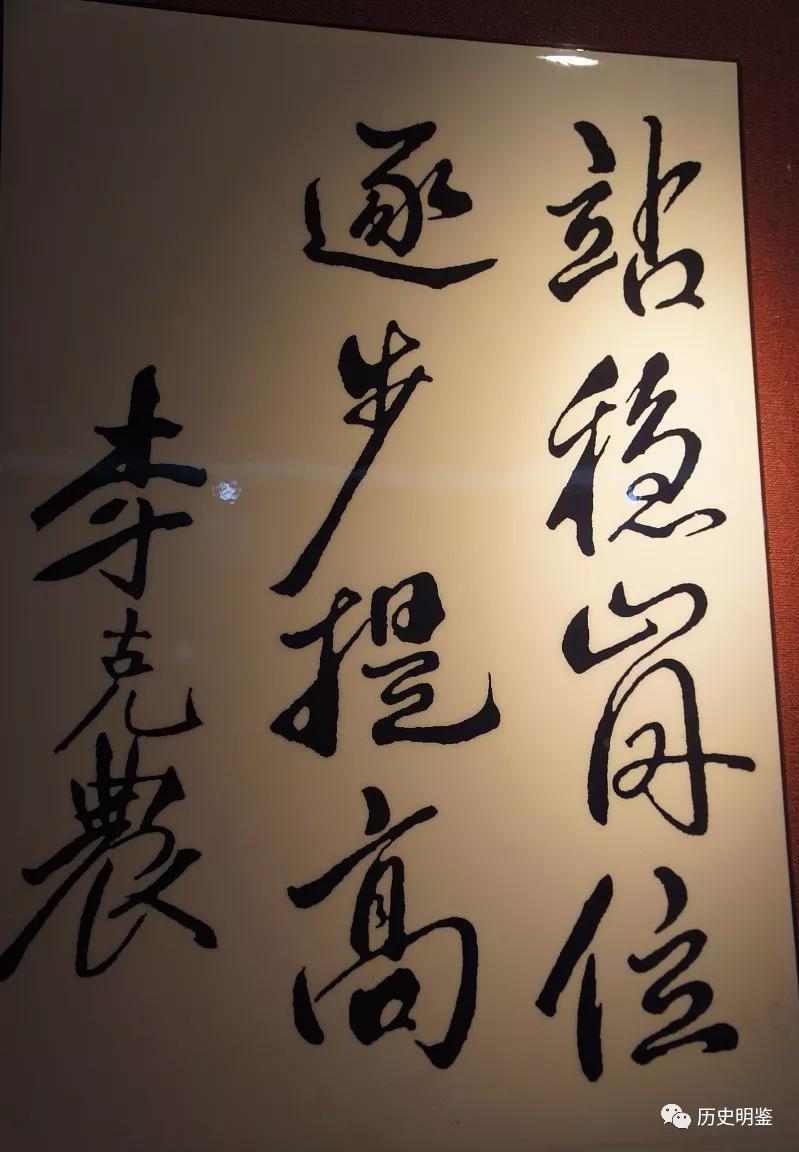 站稳岗位
逐步提高
李克農
历史明鉴